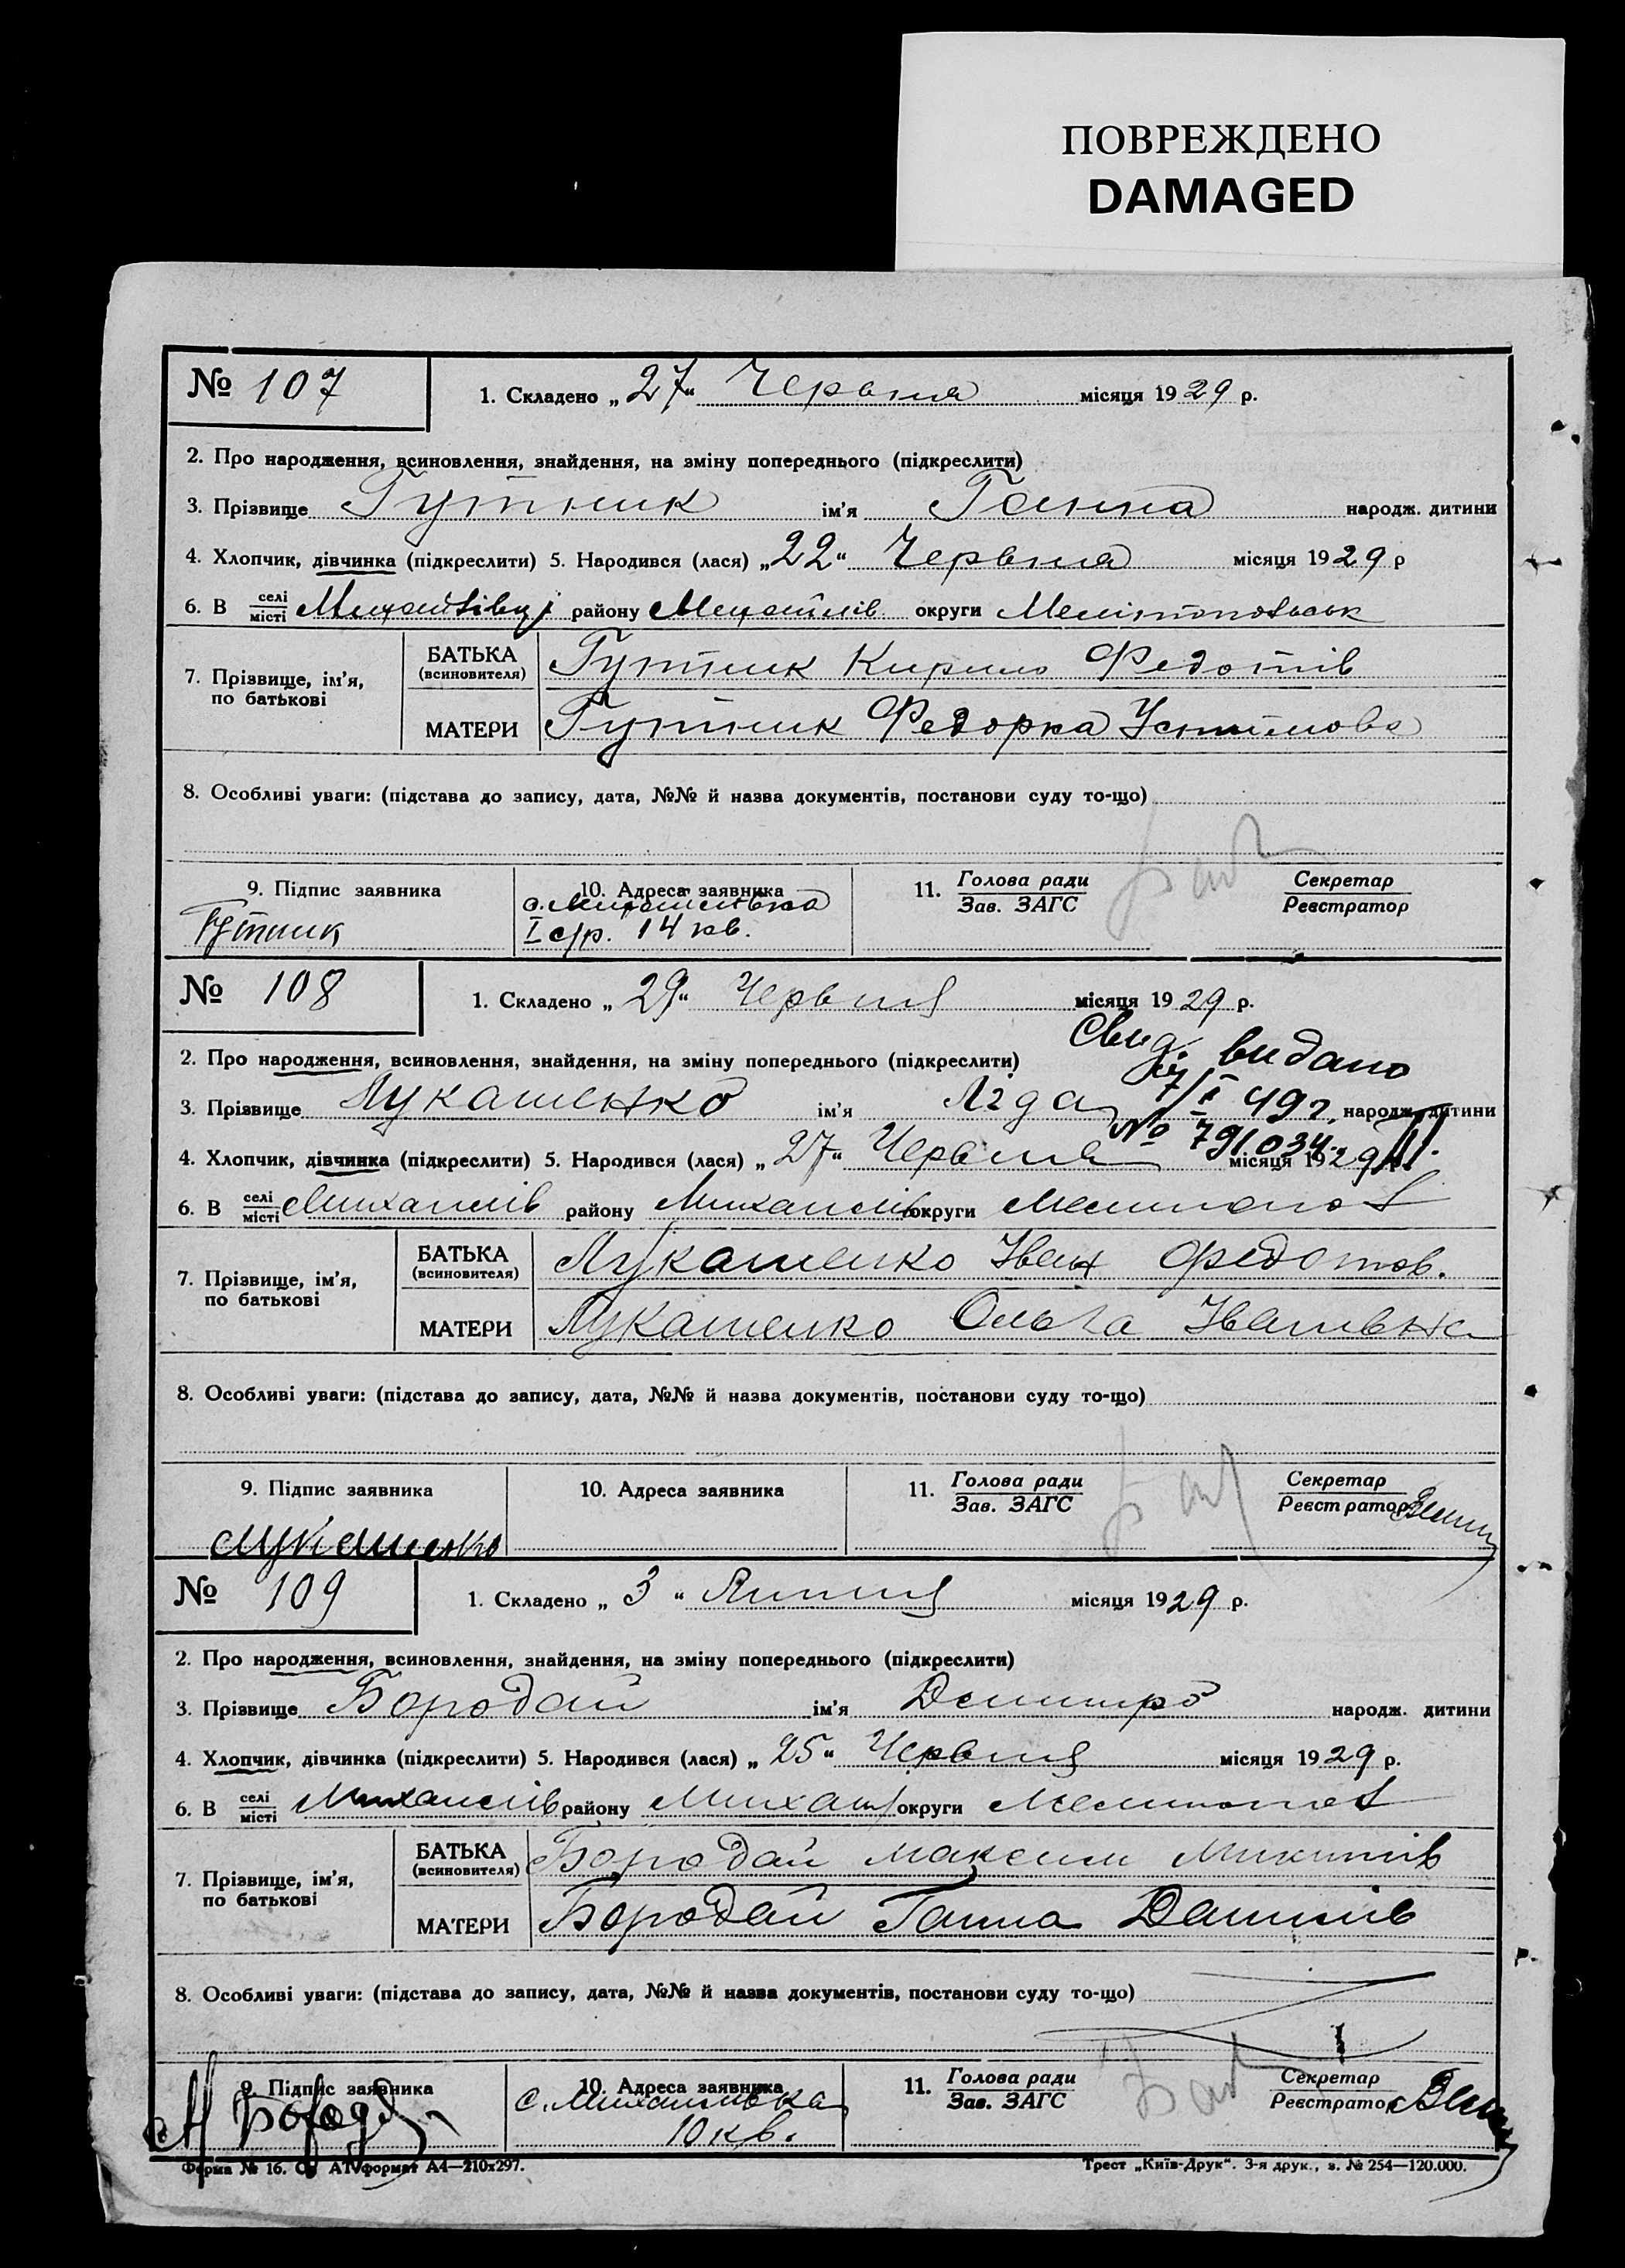 ПОВРЕЖДЕНО
DAMAGED
№ 107 1. Складено „ 27 “ Червня місяця 1929 р.
2. Про народження, всиновлення, знайдення, на зміну попереднього (підкреслити)
3. Прізвище Гутник ім'я Ганна народж. дитини
4. Хлопчик, дівчинка (підкреслити) 5. Народився (лася) „ 22 “ Червня місяця 1929 р
6. В селі місті району округи
7. Прізвище, ім'я, по батькові БАТЬКА (всиновителя) Гутник Кирило Федотів
МАТЕРИ Гутник Федорка Устимова
8. Особливі уваги: (підстава до запису, дата, №№ й назва документів, постанови суду то-що)
9. Підпис заявника 10. Адреса заявника 11. Голова ради Зав. ЗАГС Секретар Реєстратор
Гутник I с/р. 14 кв.
№ 108 1. Складено „ 29 “ Червня місяця 1929 р.
Свид. видано
2. Про народження, всиновлення, знайдення, на зміну попереднього (підкреслити)
3. Прізвище Лукашенко ім'я Ліда 49 г. народж. дитини
№ 791034
4. Хлопчик, дівчинка (підкреслити) 5. Народився (лася) „ 27 “ Червня місяця 1929
6. В селі місті Михайлів району Михайлів округи Мелитопол
7. Прізвище, ім'я, по батькові БАТЬКА (всиновителя) Лукашенко Іван Федотов.
МАТЕРИ Лукашенко Ольга Іванівна
8. Особливі уваги: (підстава до запису, дата, №№ й назва документів, постанови суду то-що)
9. Підпис заявника 10. Адреса заявника 11. Голова ради Зав. ЗАГС Секретар Реєстратор
Лукашенко
№ 109 1. Складено „ 3 “ Липня місяця 1929 р.
2. Про народження, всиновлення, знайдення, на зміну попереднього (підкреслити)
3. Прізвище Бородай ім'я Дмитро народж. дитини
4. Хлопчик, дівчинка (підкреслити) 5. Народився (лася) „ 25 “ Червня місяця 1929 р.
6. В селі місті Михайлів району Михайл округи Мелитопол
7. Прізвище, ім'я, по батькові БАТЬКА (всиновителя) Бородай Максим Микитів
МАТЕРИ Бородай Ганна Данилів
8. Особливі уваги: (підстава до запису, дата, №№ й назва документів, постанови суду то-що)
9. Підпис заявника 10. Адреса заявника 11. Голова ради Зав. ЗАГС Секретар Реєстратор
с. Михайлівка
10 кв.
Форма № 16. формат А4—210х297. Трест „Київ-Друк“. 3-я друк., з. № 254—120.000.